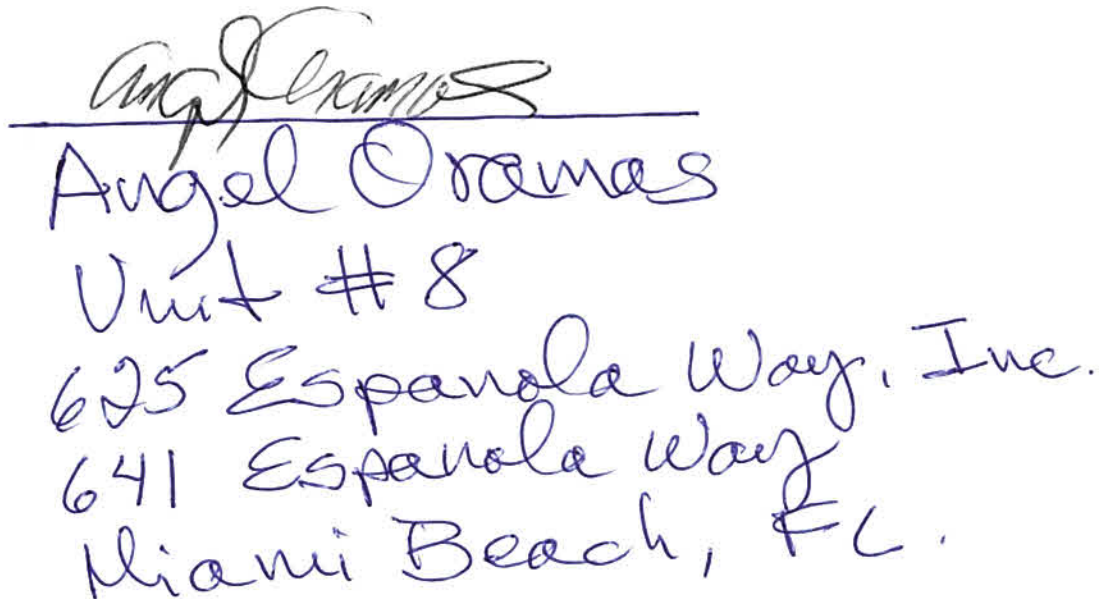 Angel Oramas
Angel Oramas
Unit # 8
625 Espanola Way, Inc.
641 Espanola Way
Miami Beach, FL.